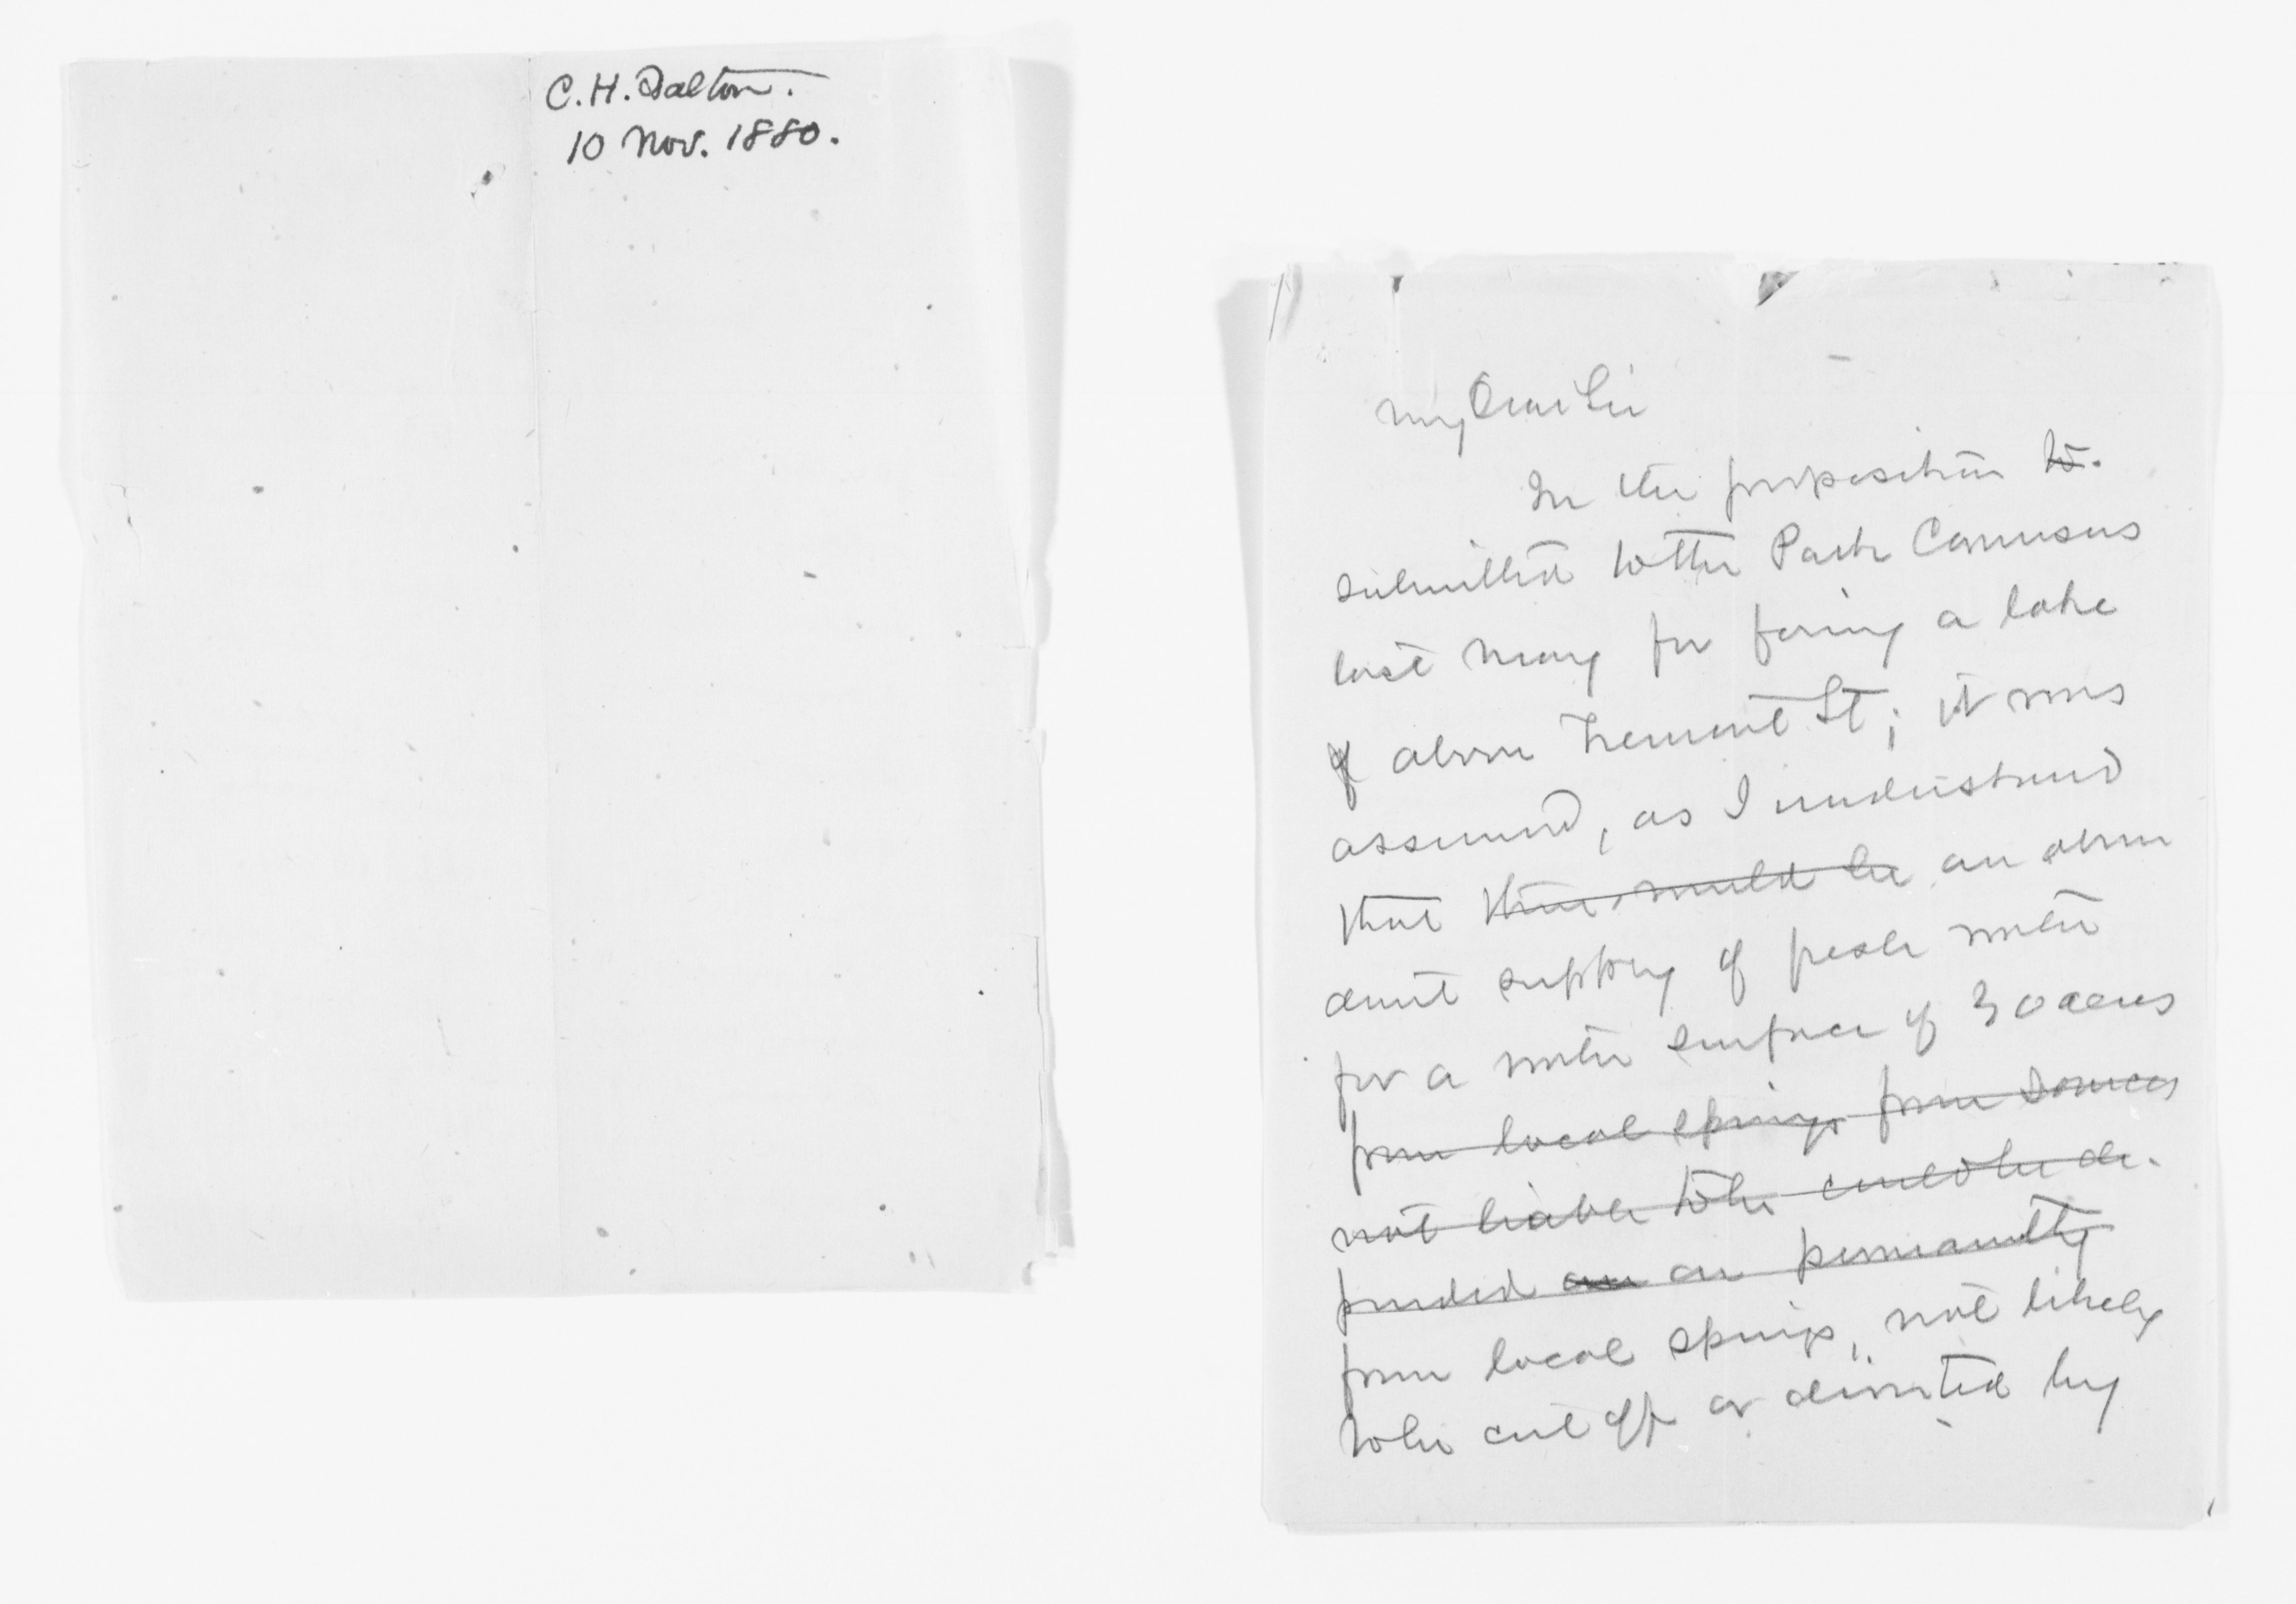 C. H. Dalton.
10 Nov. 1880.
My Dear Sir
In the proposition to
submitted to the Park
last May for forming a lake
of above Tremont St; it was
assumed, as I understand
that there would be an abun
dant supply of fresh water
for a water surface of 30 acres
from local springs from sources
not liable to be could be de-
pended an on permanently
from local springs, not likely
to be cut off or diverted by